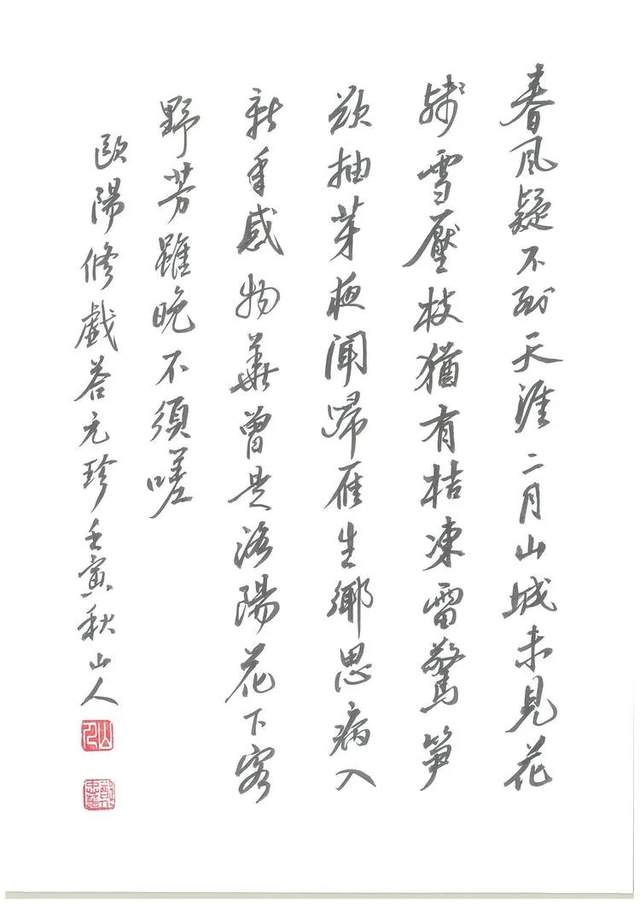 春風疑不到天涯二月山城未見花
殘雪壓枝猶有桔凍雷驚笋
欲抽芽夜聞歸雁生鄉思病入
新年感物華曾是洛陽花下客
野芳雖晚不須嗟
歐陽修戲荅元珍壬寅秋山人
山人